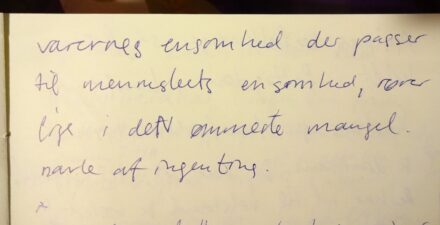 varernes ensomhed der passer
til menneskets ensomhed, rører
lige i det ømmeste mangel.
navle af ingenting.